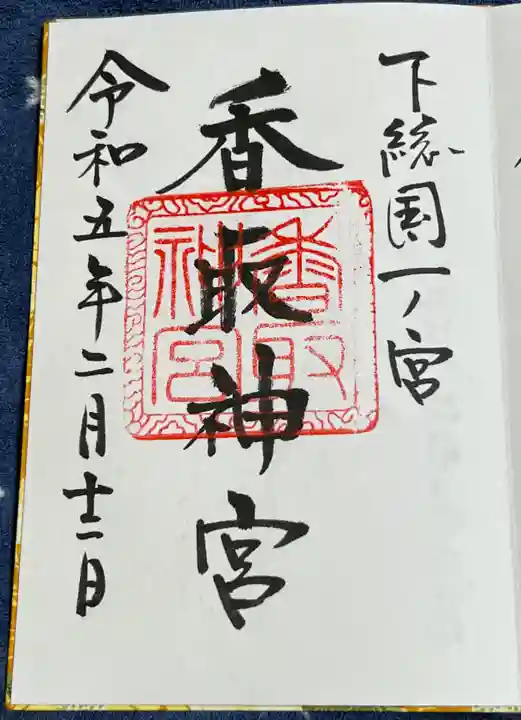 下総国一ノ宮
香取神宮
香取
神宮
令和五年二月十二日